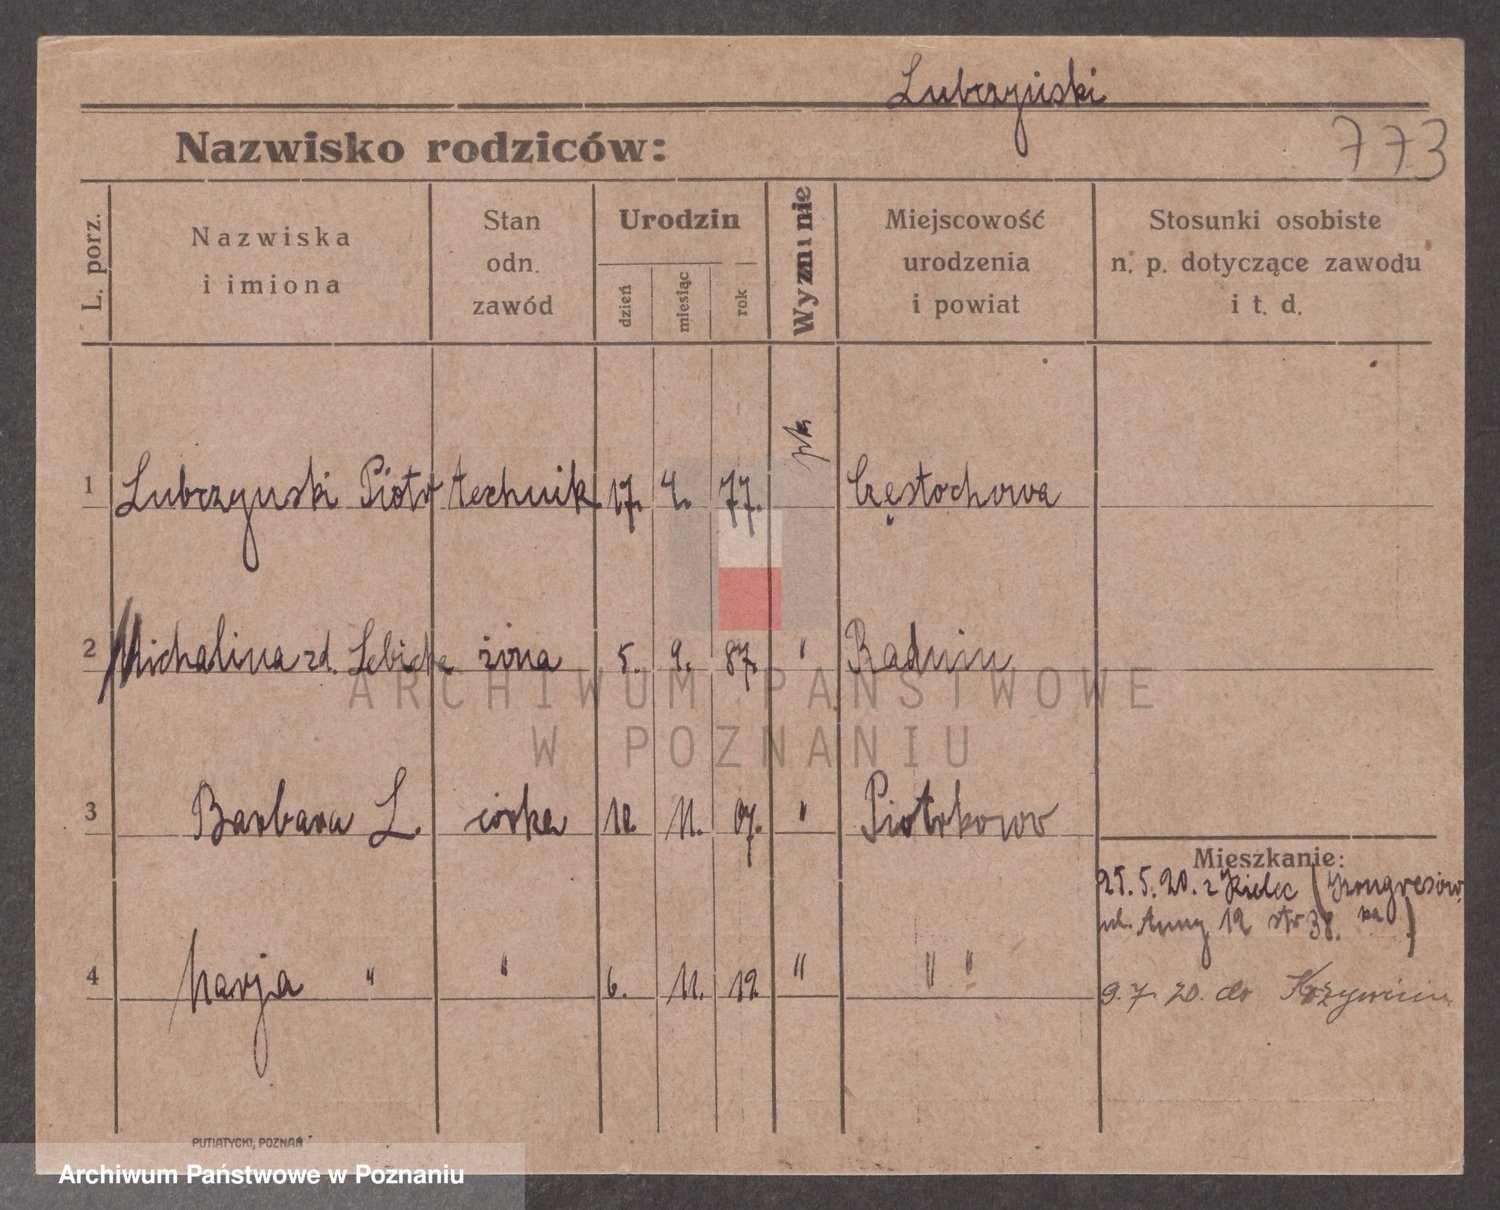 Lubrzyński
773
Nazwisko rodziców:
L. porz.
Nazwiska
i imiona
Stan
odn.
zawód
Urodzin
dzień
miesiąc
rok
Wyznanie
Miejscowość
urodzenia
i powiat
Stosunki osobiste
n. p. dotyczące zawodu
i t. d.
1 Lubrzynski Piotr technik 17. 4. 77. rk Częstochowa
2 Michalina zd. żona 5. 9. 87. " Radmin
3 Barbara L. córka 12. 11. 07. " Piotrkowo
4 Marja " " 6. 11. 12 " " "
Mieszkanie:
25. 5. 20. z Kielc (Kongresów
ul. Anny 12 str 38. ka)
9. 7. 20. do Krzywinia
PUTIATYCKI, POZNAŃ
ARCHIWUM PAŃSTWOWE
W POZNANIU
Archiwum Państwowe w Poznaniu